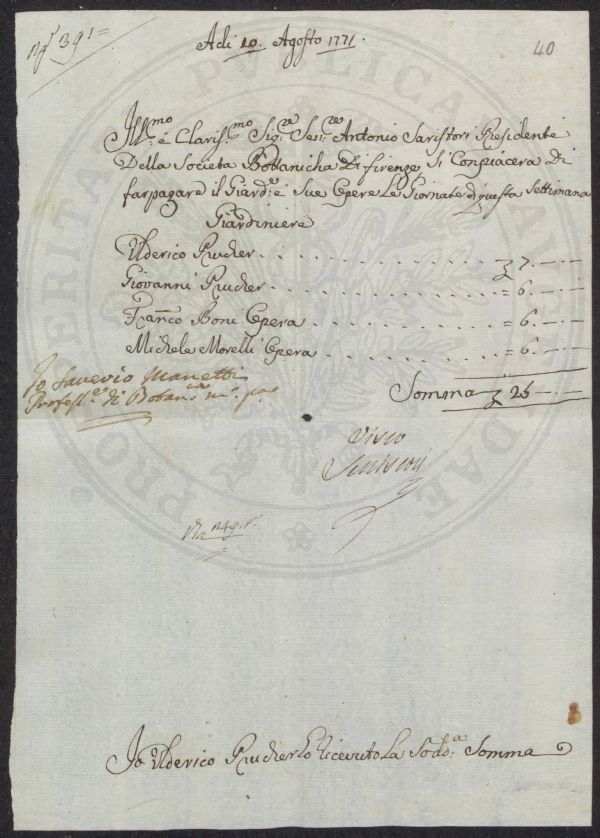 N.º 391=
40
Adi 10. Agosto 1771.
Ill:mo é Claris:mo Sig:re Sen:re Antonio Saristori Presidente
Della Societa Bottanicha Di firenze Si Conpiacera Di
far pagare il Giard:e é Sue Opere Le Giornate di questa Settimana
Giardiniere
Ulderico Prucher . . . . . . . . . . . . . . . . 7. — . —
Giovanni Prucher . . . . . . . . . . . . . . . . = 6. — . —
Franco Boni Opera . . . . . . . . . . . . . = 6. — . —
Michele Morelli Opera . . . . . . . . . . . . = 6. — . —
Somma 25 — . —
Io Saverio Manetti
Profess.e di Botanca m.o pa
Visto
Seristori
Io Ulderico Prucher ho ricevuto La Sod:a Somma
PUBLICAE
PROSPERITATI